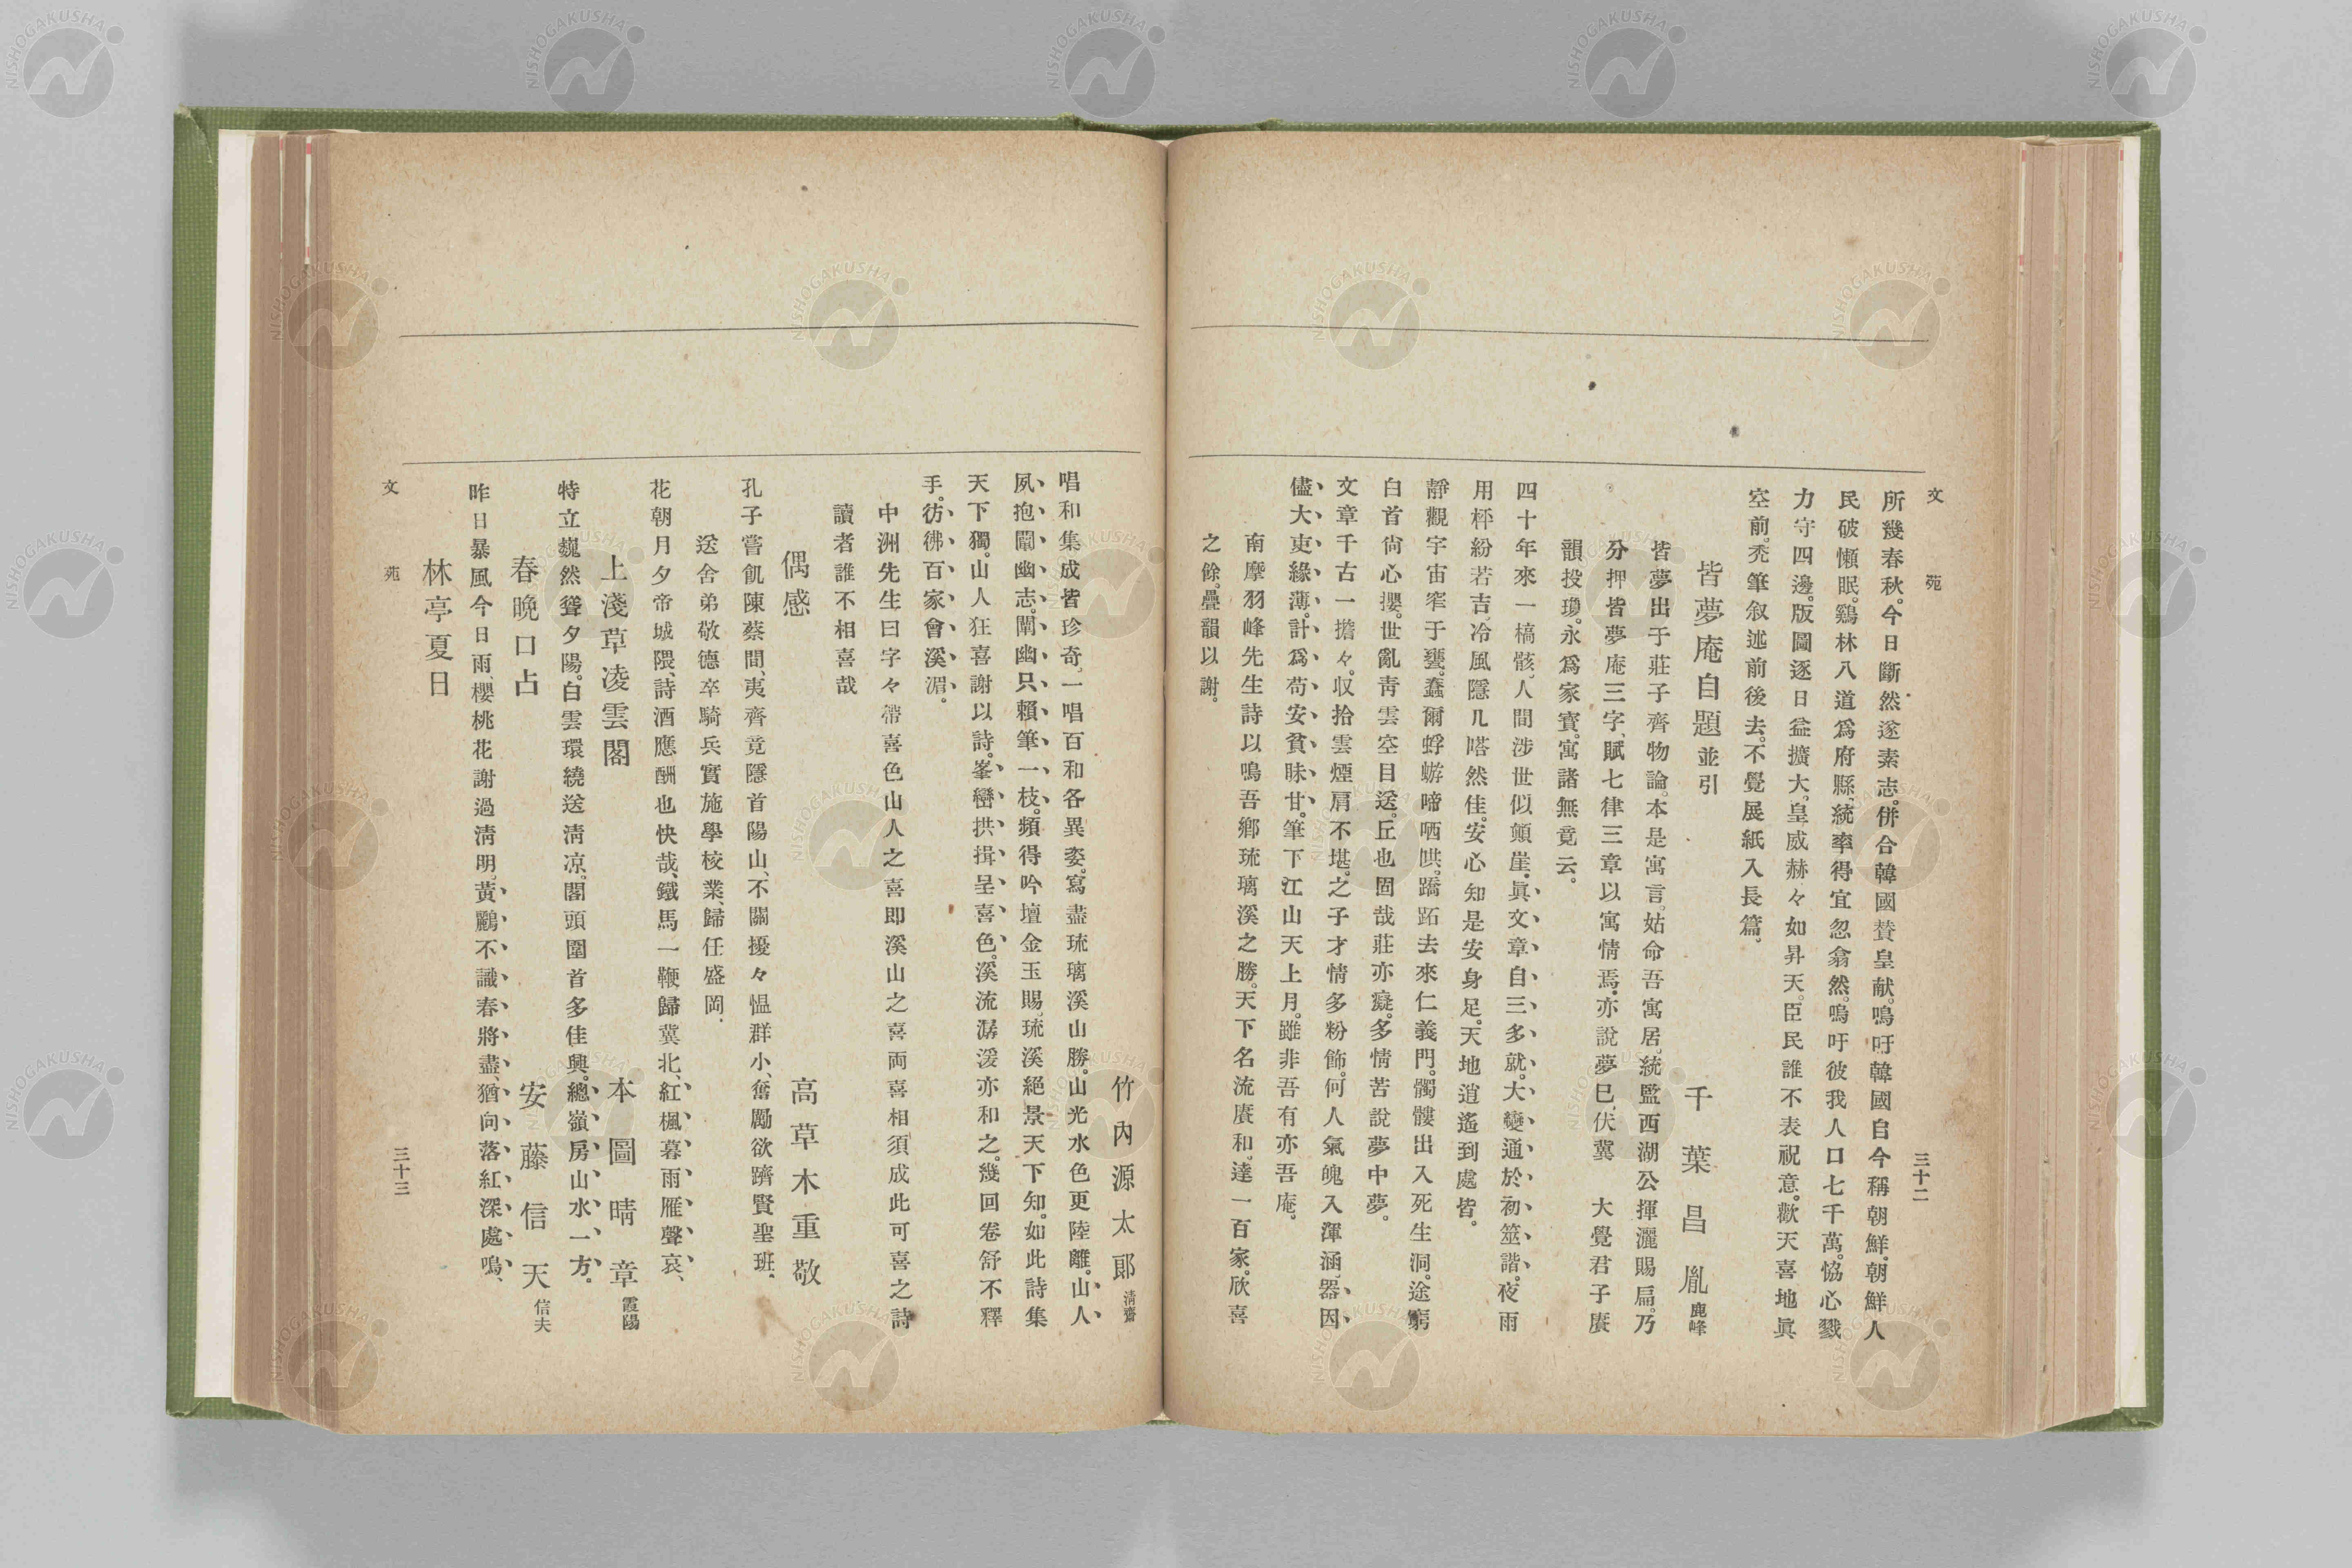 文苑
三十二
所幾春秋。今日斷然遂素志。併合韓國賛皇献。嗚呼韓國自今稱朝鮮。朝鮮人
民破懶眠。鷄林八道爲府縣、統率得宜忽翕然。嗚吁彼我人口七千萬。恊心戮
力守四邊。版圖逐日益擴大。皇威赫々如昇天。臣民誰不表祝意。歡天喜地眞
空前。禿筆叙述前後去。不覺展紙入長篇。
皆夢庵自題並引
千葉昌胤鹿峰
皆夢出于莊子齊物論。本是寓言。姑命吾寓居。統監西湖公揮灑賜扁。乃
分押皆夢庵三字、賦七律三章以寓情焉。亦說夢巳、伏冀 大覺君子賡
韻投瓊。永爲家寳。寓諸無竟云。
四十年來一槁骸、人間涉世似顛崖。眞文章自三多就。大變通於初筮諧。夜雨
用枰紛若吉、冷風隱几嗒然佳。安心知是安身足。天地逍遙到處皆。
靜觀宇宙窄于甕。蠢爾蜉蝣啼哂哄。蹻跖去來仁義門。髑髏出入死生洞。途窮
白首尙心攖。世亂靑雲空目送。丘也固哉莊亦癡。多情苦說夢中夢。
文章千古一擔々。収拾雲煙肩不堪。之子才情多粉飾。何人氣魄入渾涵、器因
儘大吏緣薄。計爲苟安貧昧甘。筆下江山天上月。雖非吾有亦吾庵。
南摩羽峰先生詩以鳴吾鄕琉璃溪之勝。天下名流賡和。達一百家。欣喜
之餘。疊韻以謝。
竹內源太郞淸齋
唱和集成皆珍奇。一唱百和各異姿。寫盡琉璃溪山勝。山光水色更陸離。山人
夙抱闡幽志。闡幽只賴筆一枝。頻得吟壇金玉賜。琉溪絕景天下知。如此詩集
天下獨。山人狂喜謝以詩。峯巒拱揖呈喜色。溪流潺湲亦和之。幾回卷舒不釋
手。彷彿百家會溪湄。
中洲先生曰字々帶喜色山人之喜即溪山之喜両喜相須成此可喜之詩
讀者誰不相喜哉
偶感
高草木重敬
孔子嘗飢陳蔡間、夷齊竟隱首陽山、不關擾々慍群小、奮勵欲躋賢聖班。
送舍弟敬德卒騎兵實施學校業、歸任盛岡、
花朝月夕帝城隈、詩酒應酬也快哉、鐵馬一鞭歸冀北、紅楓暮雨雁聲哀、
上淺草凌雲閣
本圖晴章霞陽
特立巍然聳夕陽。白雲環繞送淸凉。閣頭圍首多佳興。總嶺房山水一方。
春晚口占
安藤信天信夫
昨日暴風今日雨、櫻桃花謝過淸明。黃鸝不識春將盡、猶向落紅深處鳴、
林亭夏日
文苑
三十三